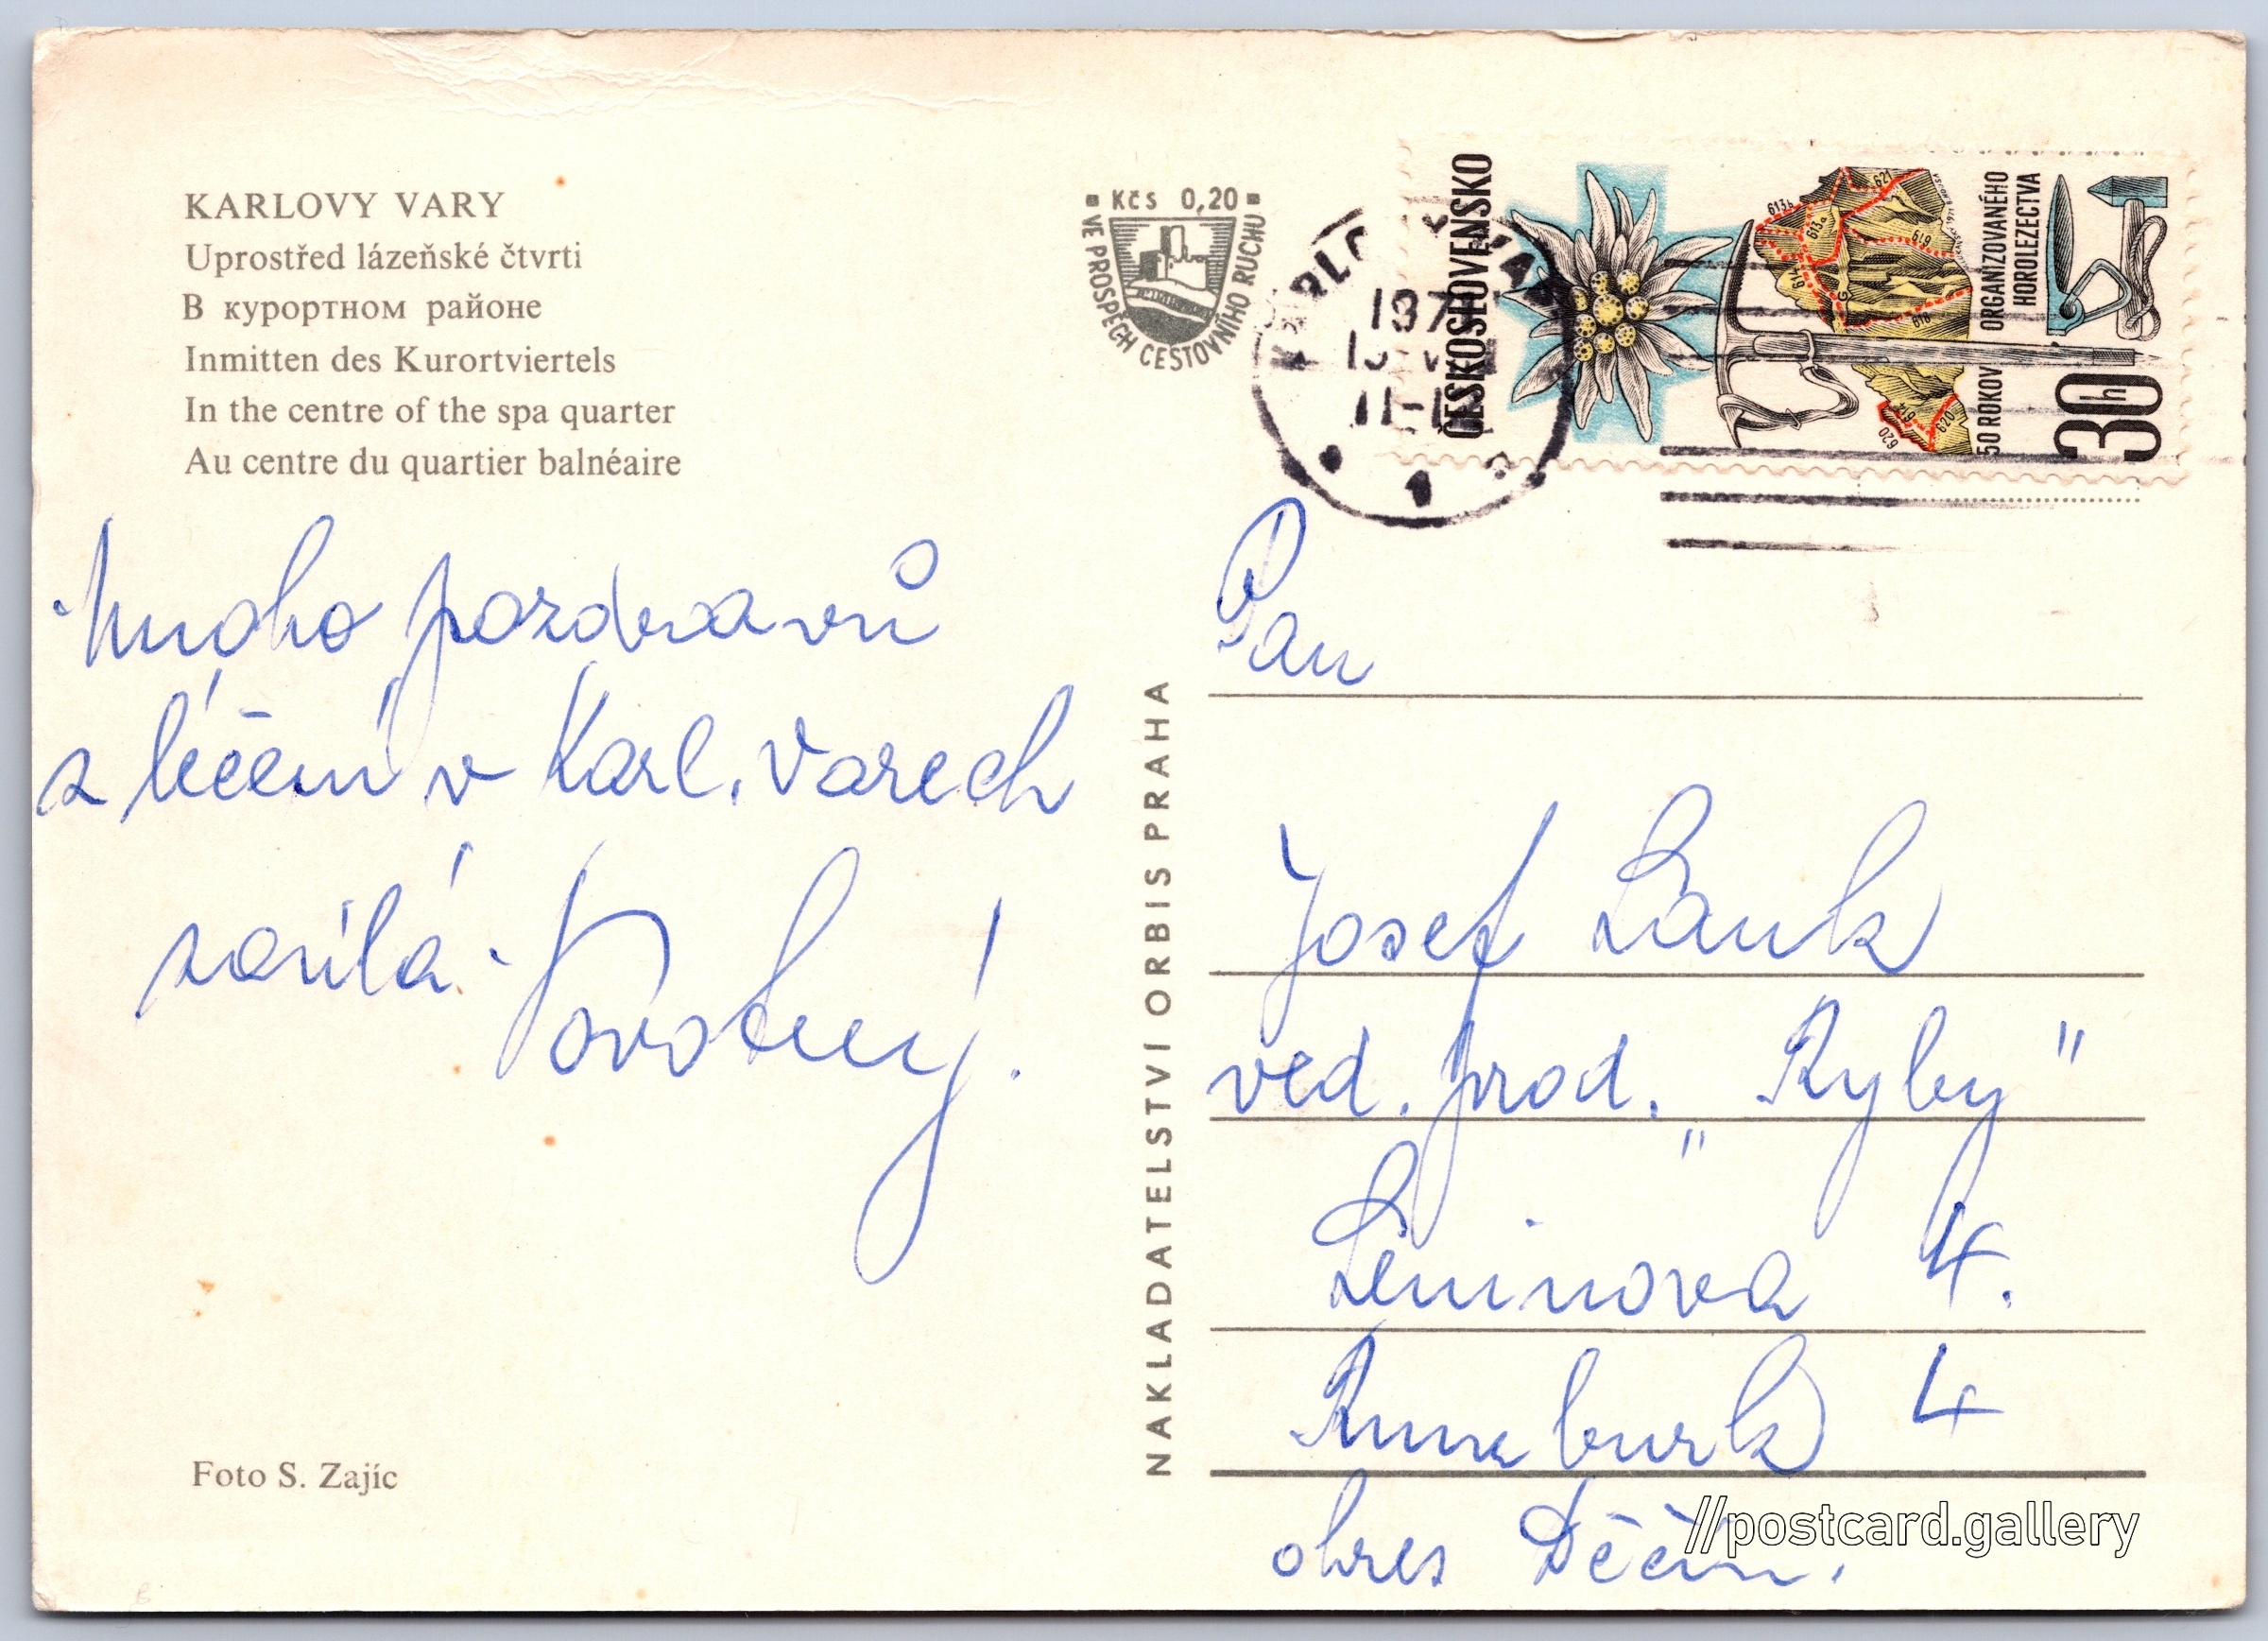 KARLOVY VARY
Uprostřed lázeňské čtvrti
В курортном районе
Inmitten des Kurortviertels
In the centre of the spa quarter
Au centre du quartier balnéaire
Kčs 0,20
VE PROSPĚCH CESTOVNÍHO RUCHU
ČESKOSLOVENSKO
613b
621
613a
619
614
616
620
614
620
50 ROKOV ORGANIZOVANÉHO
HOROLEZECTVA
30 h
Mnoho pozdravů
z léčení v Karl. Varech
zasílá
Pan
Josef Lank
ved. prod. "Ryby"
Leninova 4.
Rumburk 4
okres Děčín.
NAKLADATELSTVÍ ORBIS PRAHA
Foto S. Zajíc
//postcard.gallery